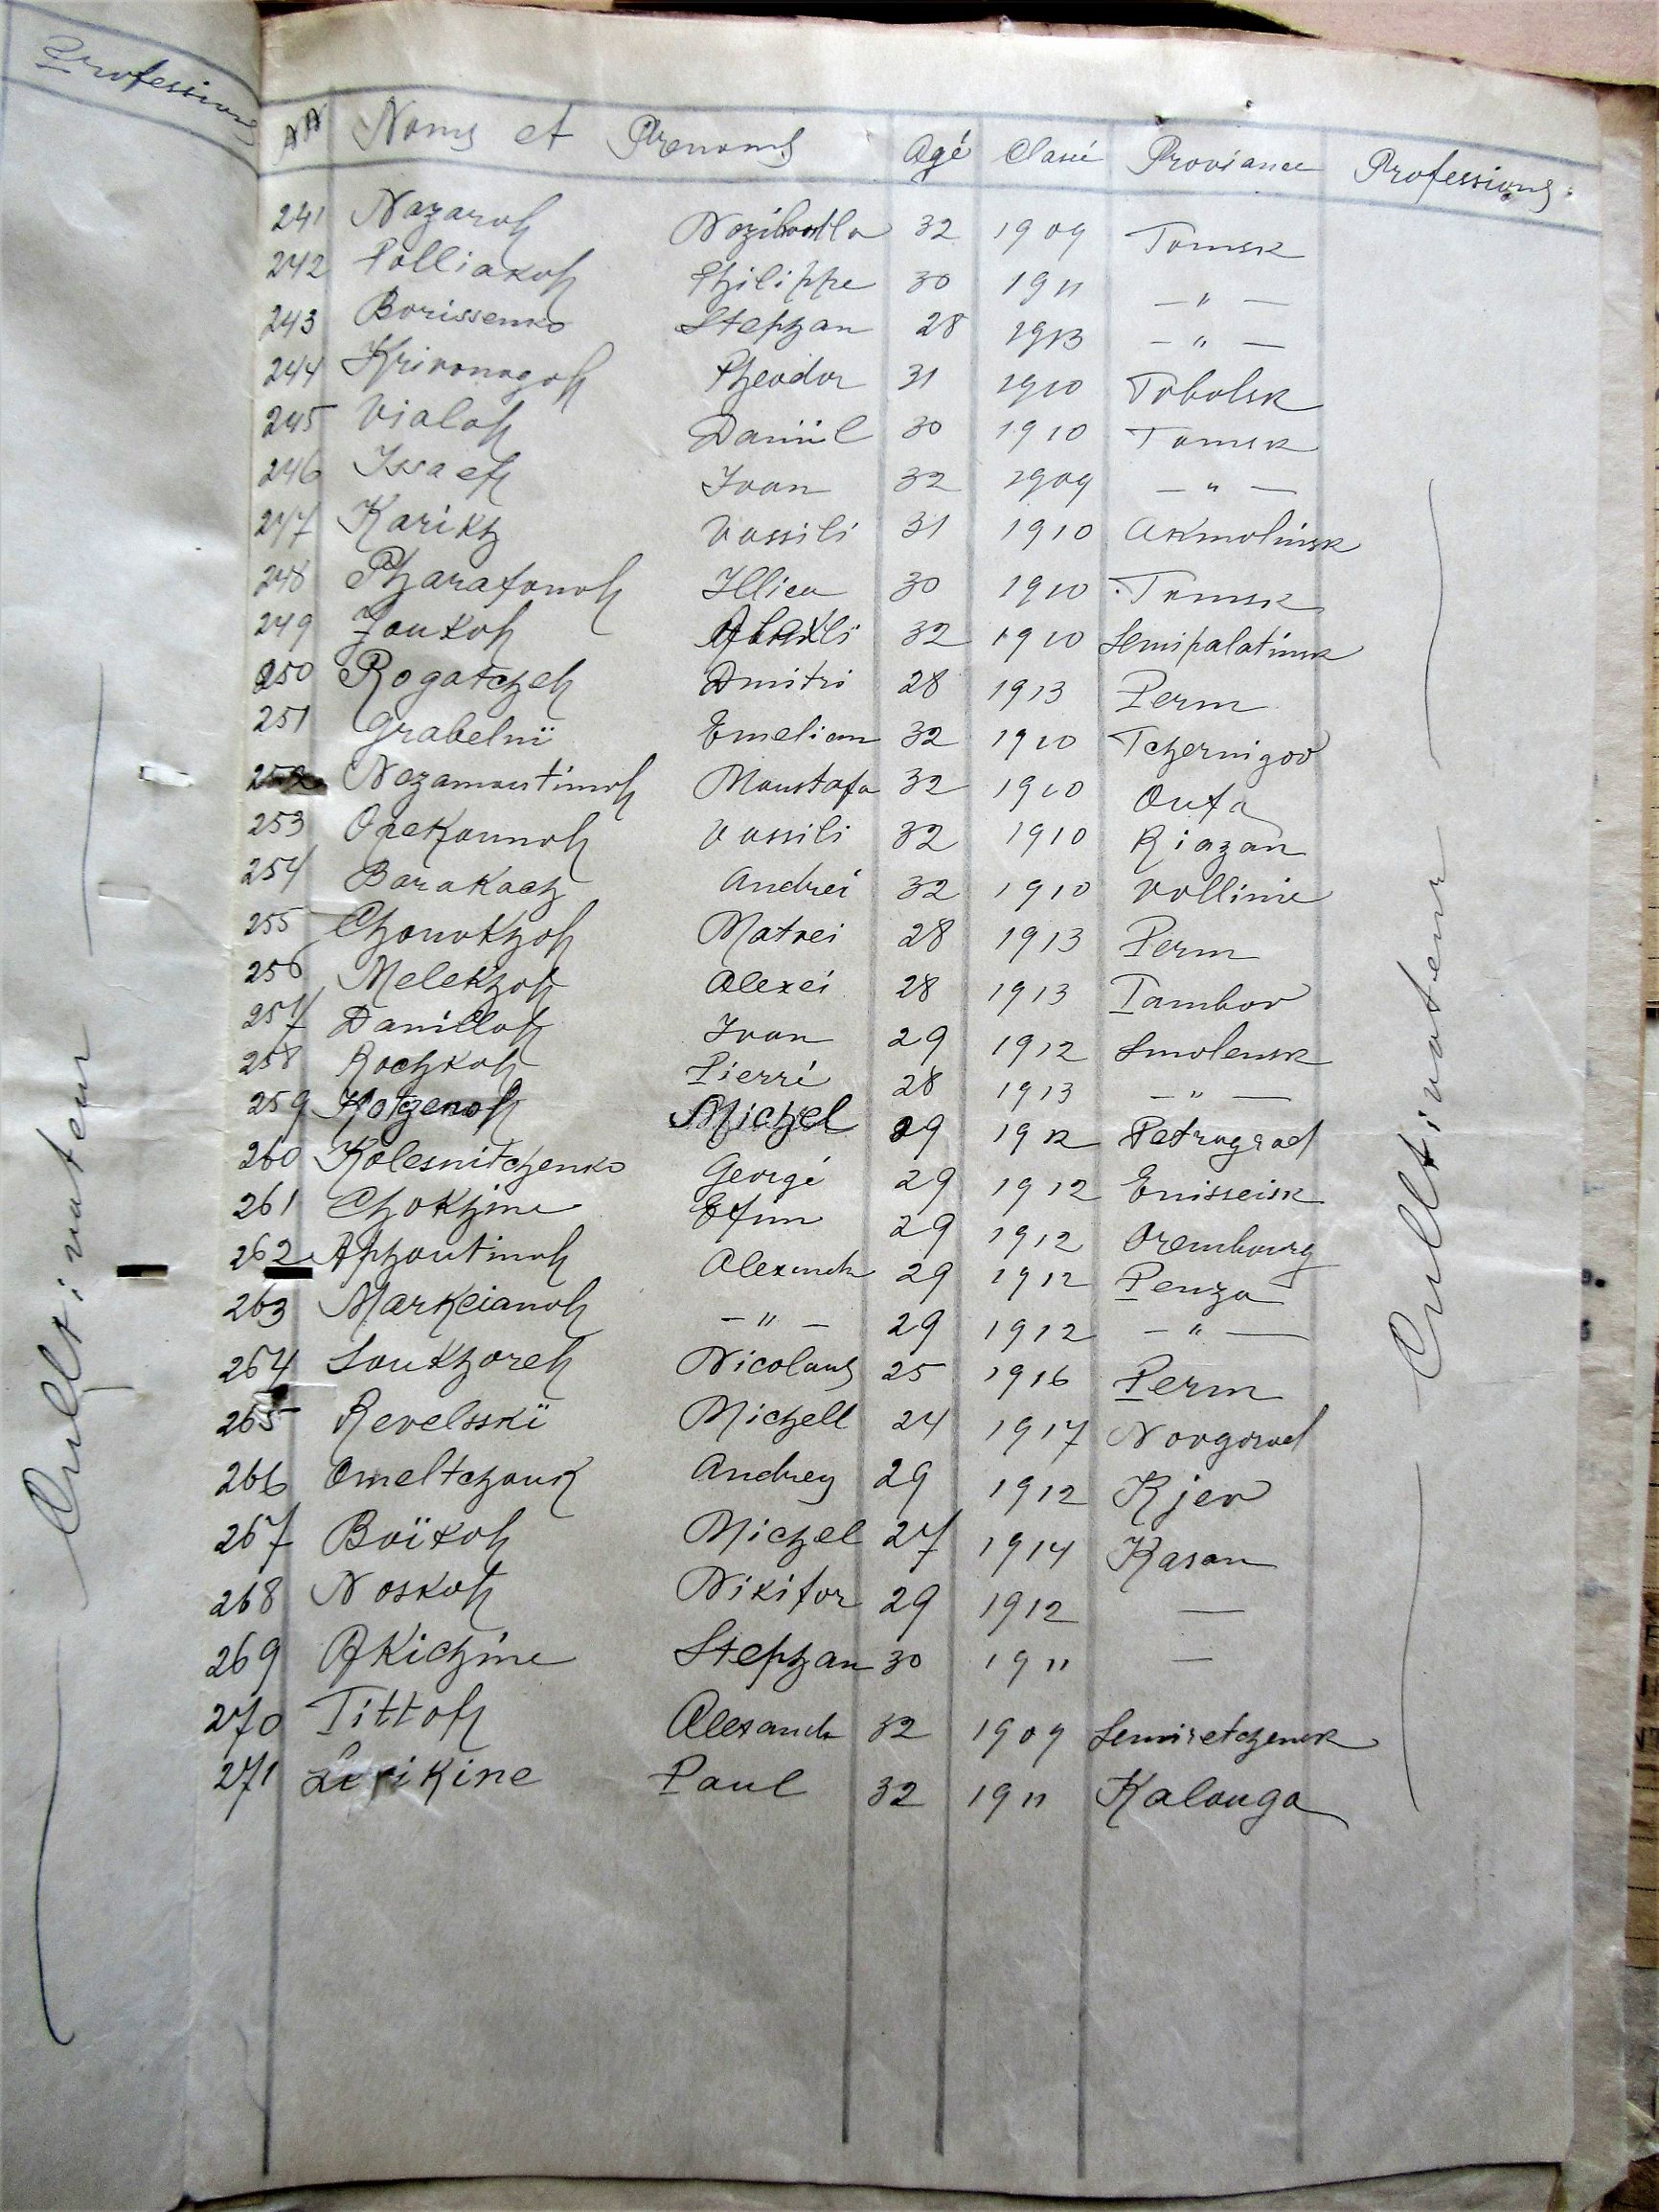 Professions
NN Noms et Prenoms Agé Classé Proviance Professions:
241 Nazaroff 32 1909 Tomsk
242 Polliakoff Philippe 30 1911 — " —
243 Borissenko Stephan 28 1913 — " —
244 Krivonogoff Pheodor 31 1910 Tobolsk
245 Vialoff Daniil 30 1910 Tomsk
246 Issaeff Ivan 32 1909 — " —
247 Karikh Vassili 31 1910 Akmolinsk
248 Pharafonoff Illica 30 1910 Tomsk
249 Joukoff 32 1910 Semipalatinsk
250 Rogatcheff Dmitri 28 1913 Perm
251 Grabelnii Emelian 32 1910 Tchernigov
252 Nezamoutinoff Moustafa 32 1910 Oufa
253 Opekounoff Vassili 32 1910 Riazan
254 Barakach Andrei 32 1910 Vollinie
255 Matvei 28 1913 Perm
256 Melekhoff Alexei 28 1913 Tambov
257 Daniloff Ivan 29 1912 Smolensk
258 Rochkoff Pierré 28 1913 — " —
259 Michel 29 1912 Petrograd
260 Kolesnitchenko Georgé 29 1912 Enisseisk
261 Chokhine Efim 29 1912 Orembourg
262 Aphoutinoff Alexandr 29 1912 Penza
263 Markeianoff — " — 29 1912 — " —
264 Soukhoreff Nicolaus 25 1916 Perm
265 Revelsskï Michell 24 1917 Novgorod
266 Omeltchouk Andrey 29 1912 Kjev
267 Boïkoff Michel 27 1914 Kasan
268 Noskoff Nikifor 29 1912 —
269 Akichine Stephan 30 1911 —
270 Tittoff Alexandr 32 1909 Semiretchensk
271 Paul 32 1911 Kalouga
— Cullt;vateur —
— Cullt;vateur —